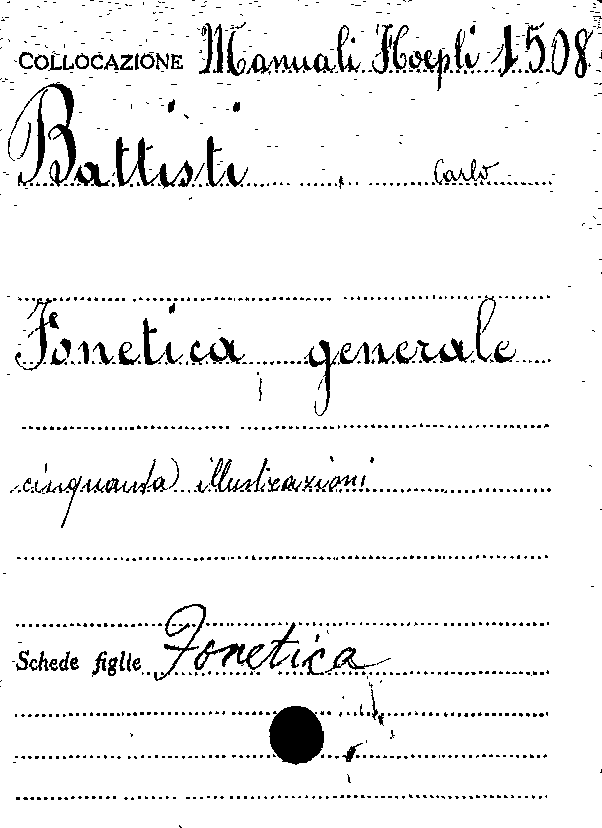 COLLOCAZIONE Manuali Hoepli 1508
Battisti, Carlo
Fonetica generale
cinquanta illustrazioni
Schede figlie Fonetica